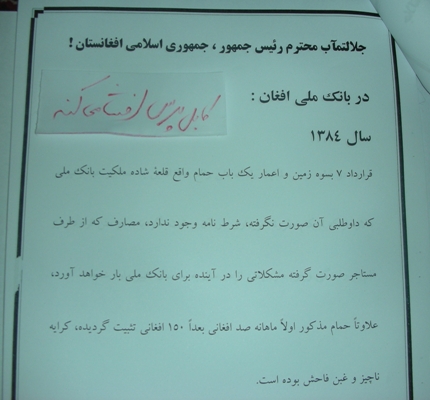 جلالتمآب محترم رئیس جمهور ، جمهوری اسلامی افغانستان !
در بانک ملی افغان :
کابل پرس افشا می کند
سال ١٣٨٤
قرارداد ٧ بسوه زمین و اعمار یک باب حمام واقع قلعۀ شاده ملکیت بانک ملی
که داوطلبی آن صورت نگرفته، شرط نامه وجود ندارد، مصارف که از طرف
مستاجر صورت گرفته مشکلاتی را در آینده برای بانک ملی بار خواهد آورد،
علاوتاً حمام مذکور اولاً ماهانه صد افغانی بعداً ١٥٠ افغانی تثبیت گردیده، کرایه
ناچیز و غبن فاحش بوده است.